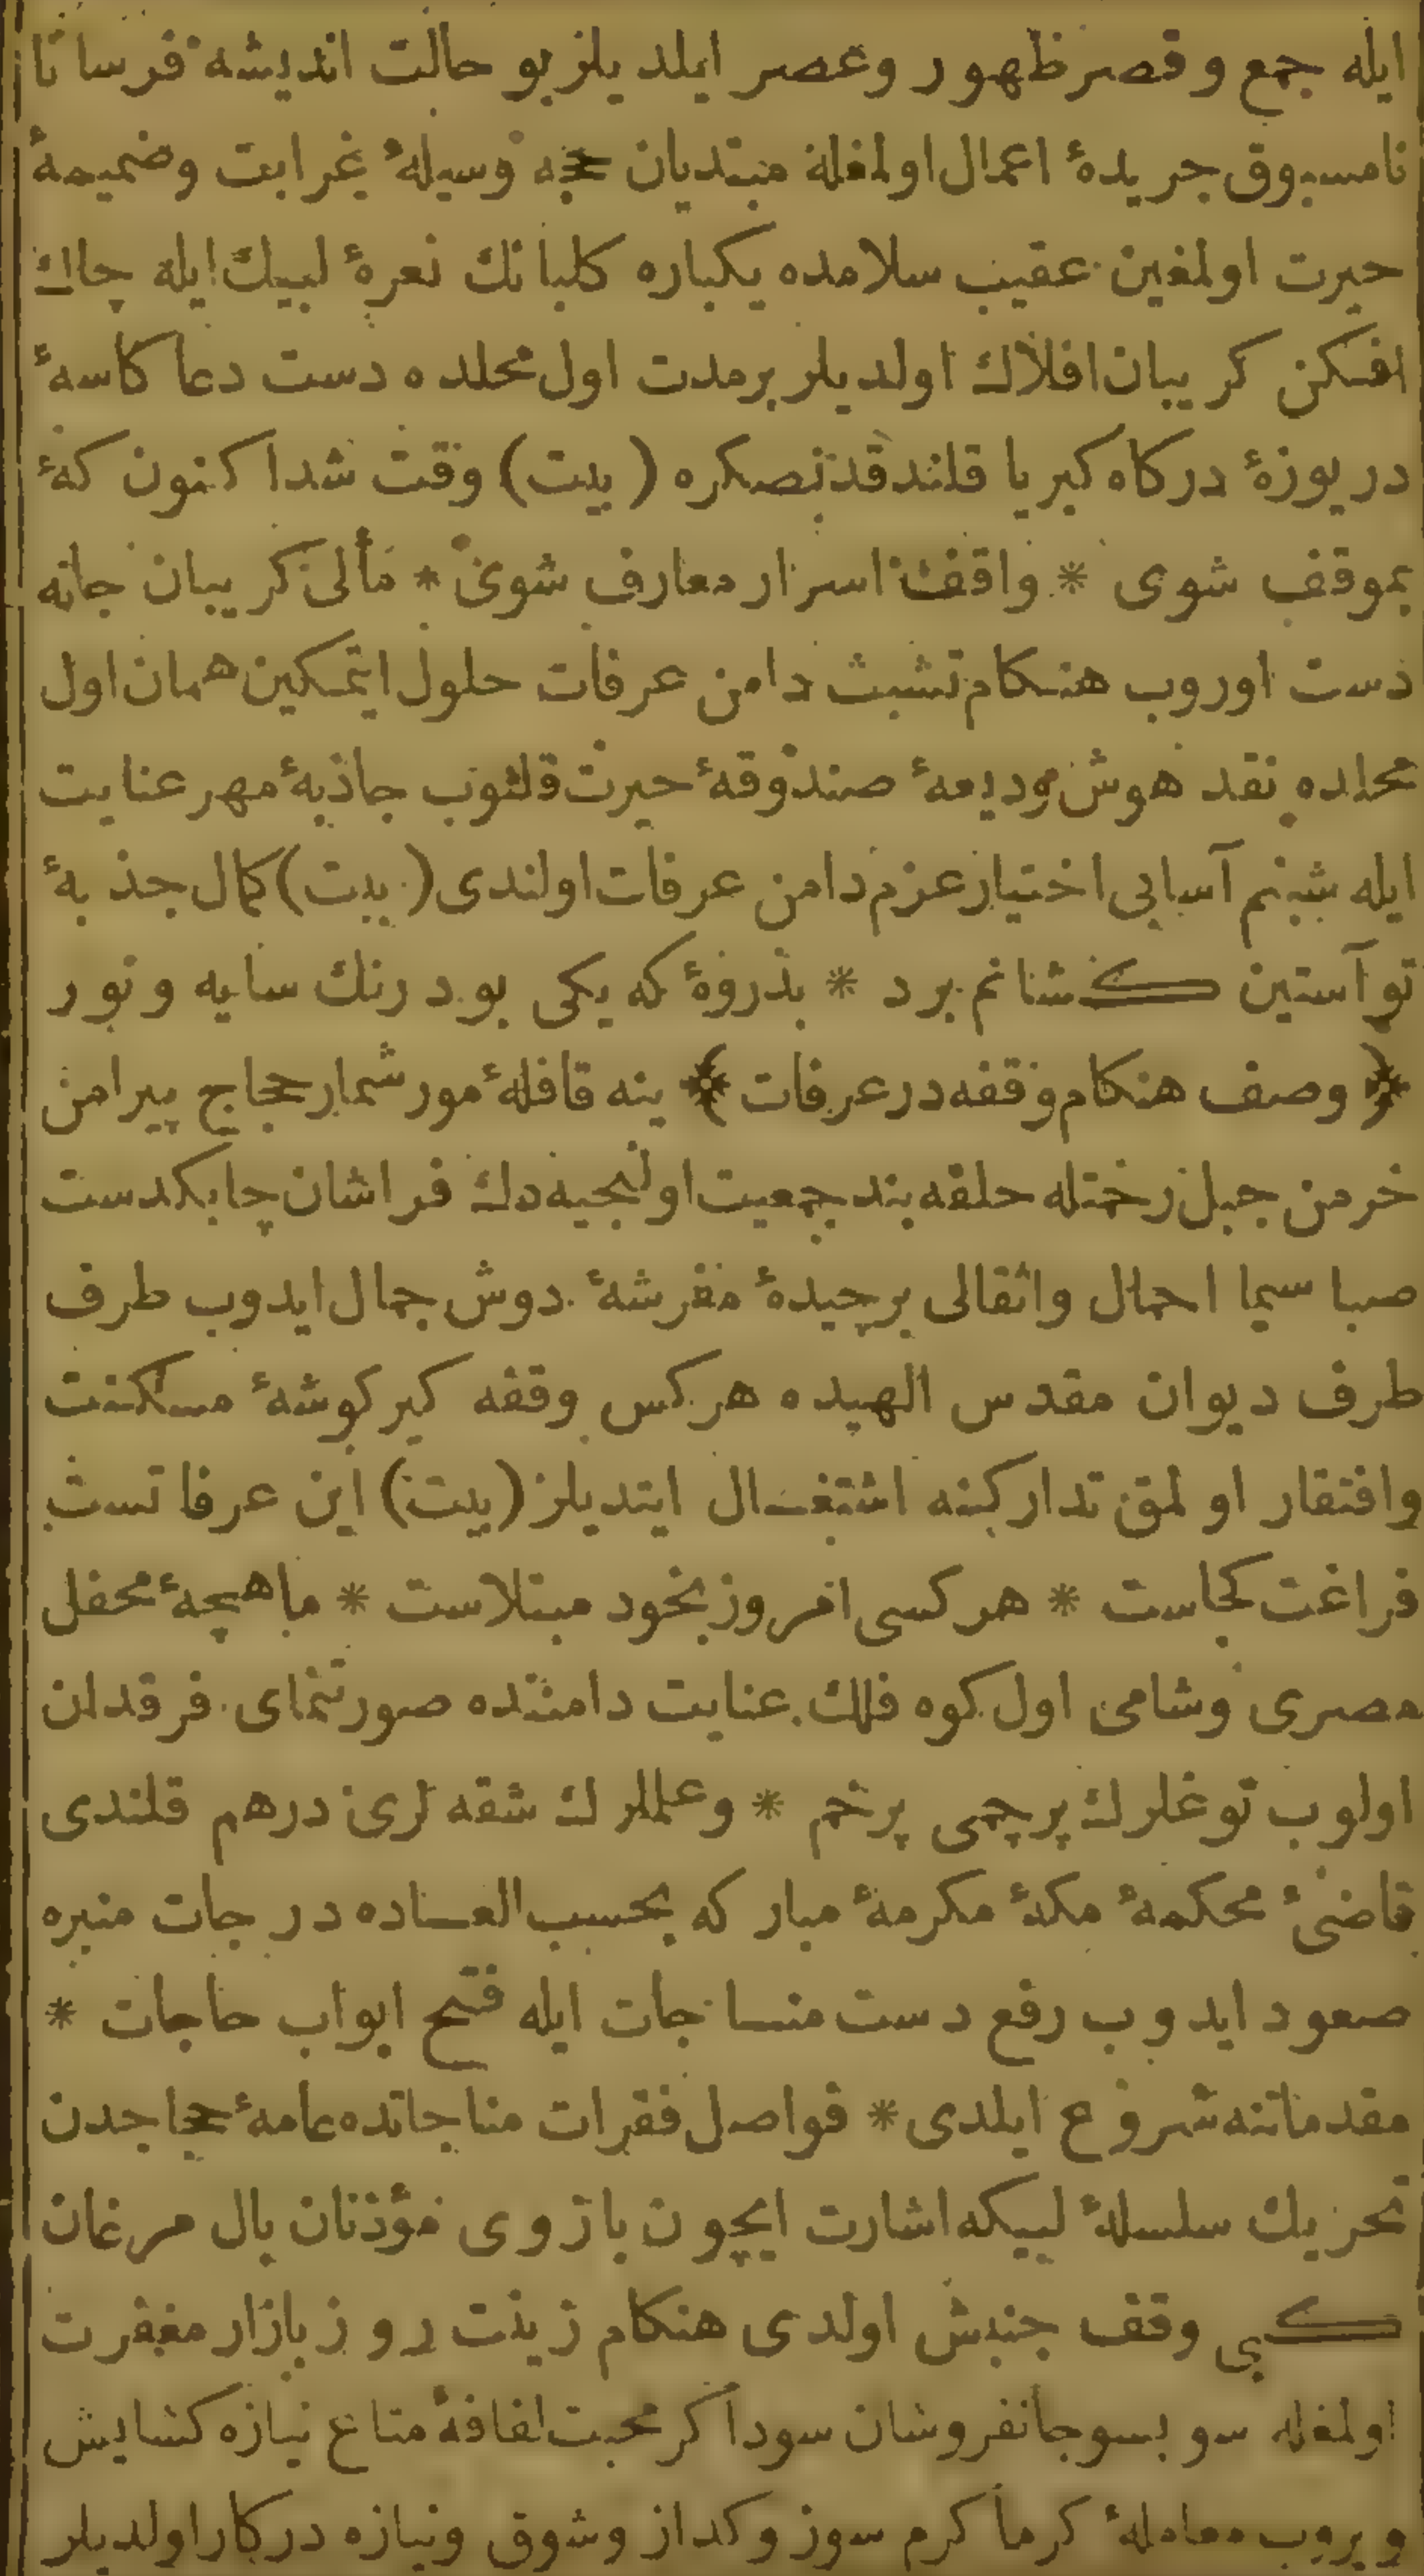 ایله جمع و قصر ظهور وعصر ایلدیلر بو حالت اندیشه فرسا تا
نامسبوق جریدهٔ اعمال اولمغله مبتدیان حجه وسیلهٔ غرابت وضمیمهٔ
حیرت اولمغین عقیب سلامده یکباره کلبانك نعرهٔ لبیك ایله چاك
افکن کریبان افلاك اولدیلر برمدت اول محلده دست دعا کاسهٔ
دریوزهٔ درکاه کبریا قلندقدنصکره (بیت) وقت شدا کنون کهٔ
بموقف شوی * واقف اسرار معارف شوی * مألی کریبان جانه
دست اوروب هنکام تشبث دامن عرفات حلول ایتمکین همان اول
محلده نقد هوش ودیعهٔ صندوقهٔ حیرت قلنوب جاذبهٔ مهر عنایت
ایله شبنم آسایی اختیار عزم دامن عرفات اولندی (بیت) کمال جذبهٔ
تو آستین کشانم برد * بذروهٔ که یکی بود رنك سایه و نور
﴿ وصف هنکام وقفه در عرفات ﴾ ینه قافلهٔ مور شمار حجاج پیرامن
خرمن جبل رختله حلقه بند جمعیت اولنجیه دك فراشان چابکدست
صبا سیما احمال واثقالی برچیدهٔ مفرشهٔ دوش جمال ایدوب طرف
طرف دیوان مقدس الهیده هرکس وقفه کیر کوشهٔ مسکنت
وافتقار اولمق تدارکنه اشتغال ایتدیلر (بیت) این عرفاتست
فراغت کجاست * هرکسی امروز بخود مبتلاست * ماهیچهٔ محفل
مصری وشامی اول کوه فلك عنایت دامننده صورتنمای فرقدان
اولوب توغلرك پرچمی پرخم * وعلملرك شقه لری درهم قلندی
قاضیٔ محکمهٔ مکهٔ مکرمهٔ مبارکه بحسب العاده درجات منبره
صعود ایدوب رفع دست مناجات ایله فتح ابواب حاجات *
مقدماتنه شروع ایلدی * فواصل فقرات مناجاتده عامهٔ حجاجدن
تحریك سلسلهٔ لبیکه اشارت ایچون بازوی مؤذنان بال مرغان
کبی وقف جنبش اولدی هنکام زینت روز بازار مغفرت
اولمغله سو بسو جانفروشان سوداکر محبت لفافهٔ متاع نیازه کشایش
ویروب معاملهٔ کرما کرم سوز وکداز وشوق ونیازه درکار اولدیلر